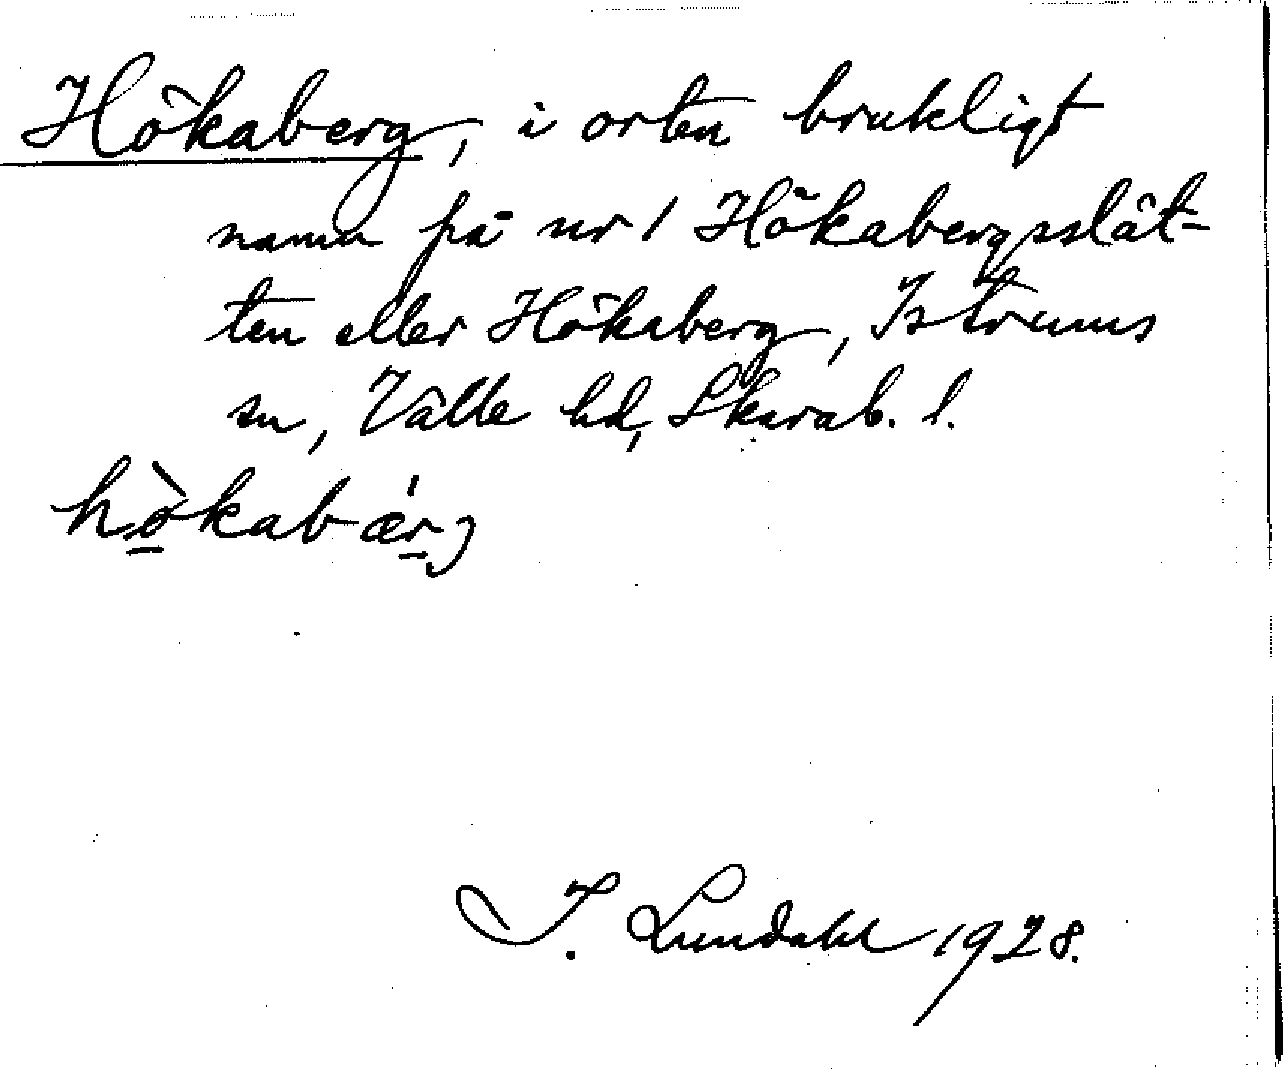 Hökaberg, i orten brukligt
namn på nr 1 Hökabergsslät-
ten eller Hökaberg, Istrums
sn, Valle hd, Skarab. l.
hò̱kabǽṟj
I. Lundahl 1928.